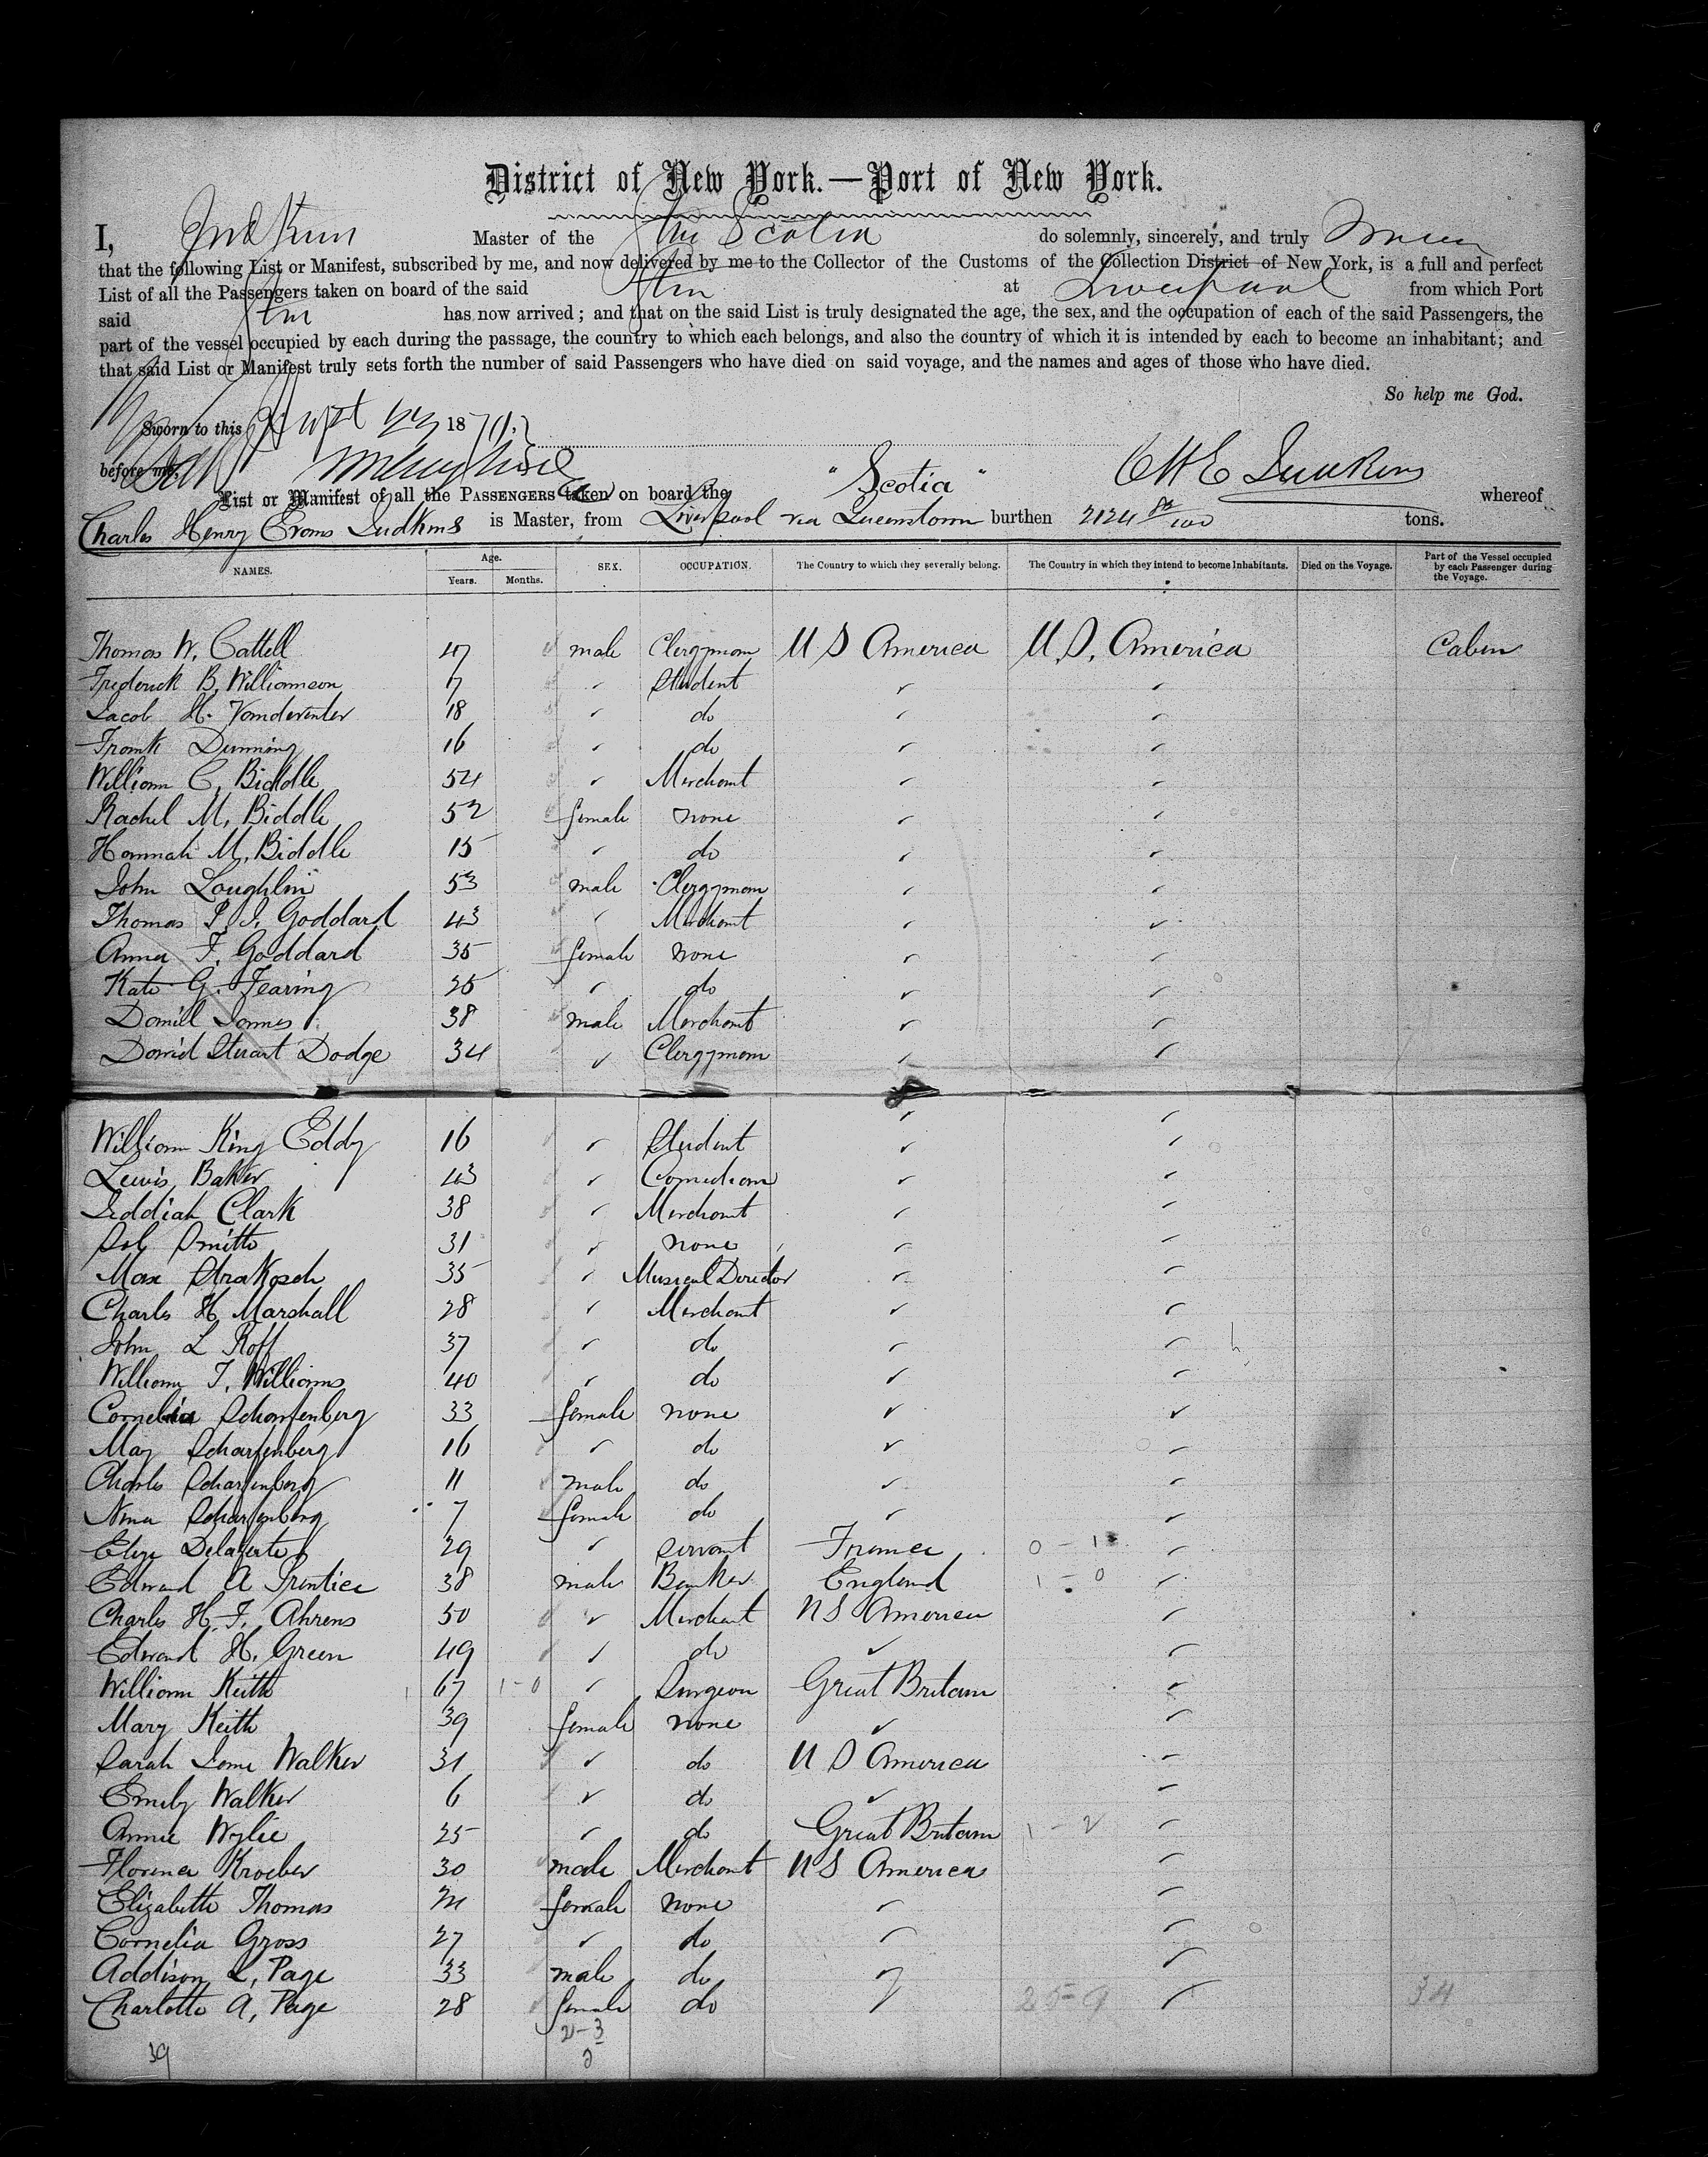 District of New York.—Port of New York.
I, Judkins Master of the Str Scotia do solemnly, sincerely, and truly Swear
that the following List or Manifest, subscribed by me, and now delivered by me to the Collector of the Customs of the Collection District of New York, is a full and perfect
List of all the Passengers taken on board of the said Str at Liverpool from which Port
said Str has now arrived; and that on the said List is truly designated the age, the sex, and the occupation of each of the said Passengers, the
part of the vessel occupied by each during the passage, the country to which each belongs, and also the country of which it is intended by each to become an inhabitant; and
that said List or Manifest truly sets forth the number of said Passengers who have died on said voyage, and the names and ages of those who have died.
So help me God.
Sworn to this Sept 1870
before me,
C H E Judkins
List or Manifest of all the PASSENGERS taken on board the "Scotia" whereof
Charles Henry Evans Judkins is Master, from Liverpool via Queenstown burthen 2124 tons.
NAMES. Age. Years. Months. SEX. OCCUPATION. The Country to which they severally belong. The Country in which they intend to become Inhabitants. Died on the Voyage. Part of the Vessel occupied by each Passenger during the Voyage.
Thomas W. Cattell 47 male Clergyman U S America U.S. America Cabin
Frederick B. Williamson 17 " Student " "
Jacob H. Vanderventer 18 " do " "
Frank Dunning 16 " do " "
William C. Biddle 54 " Merchant " "
Rachel M. Biddle 52 female none " "
Hannah M. Biddle 15 " do " "
John Loughlin 53 male Clergyman " "
Thomas P. I. Goddard 43 " Merchant " "
Anna F. Goddard 35 female none " "
Kate G. Fearing 25 " do " "
Daniel James 38 male Merchant " "
David Stuart Dodge 34 " Clergyman " "
William King Eddy 16 " Student " "
Lewis Baker 43 " Comedian " "
Jeddiah Clark 38 " Merchant " "
Sol Smith 31 " none " "
Max Strakosch 35 " Musical Director " "
Charles H Marshall 28 " Merchant " "
John L Roff 37 " do " "
William T. Williams 40 " do " "
Cornelia Scharfenberg 33 female none " "
May Scharfenberg 16 " do " "
Charles Scharfenberg 11 male do " "
Nina Scharfenberg 7 female do " "
Elize 29 " servant France 0 - 1 "
Edward A Prentice 38 male Banker England 1 - 0 "
Charles H. F. Ahrens 50 " Merchant U S America "
Edward H. Green 49 " do " "
William Keith 67 1-0 " Surgeon Great Britain "
Mary Keith 39 female none " "
Sarah Jane Walker 31 " do U S America "
Emily Walker 6 " do " "
Annie Wylie 25 " do Great Britain 1 - 2 "
Florence Kroeber 30 male Merchant U S America "
Elizabeth Thomas 24 female none " "
Cornelia Gross 27 " do " "
Addison L. Page 33 male do " "
Charlotte A. Page 28 female do " 25-9 " 34
2-3
2
39